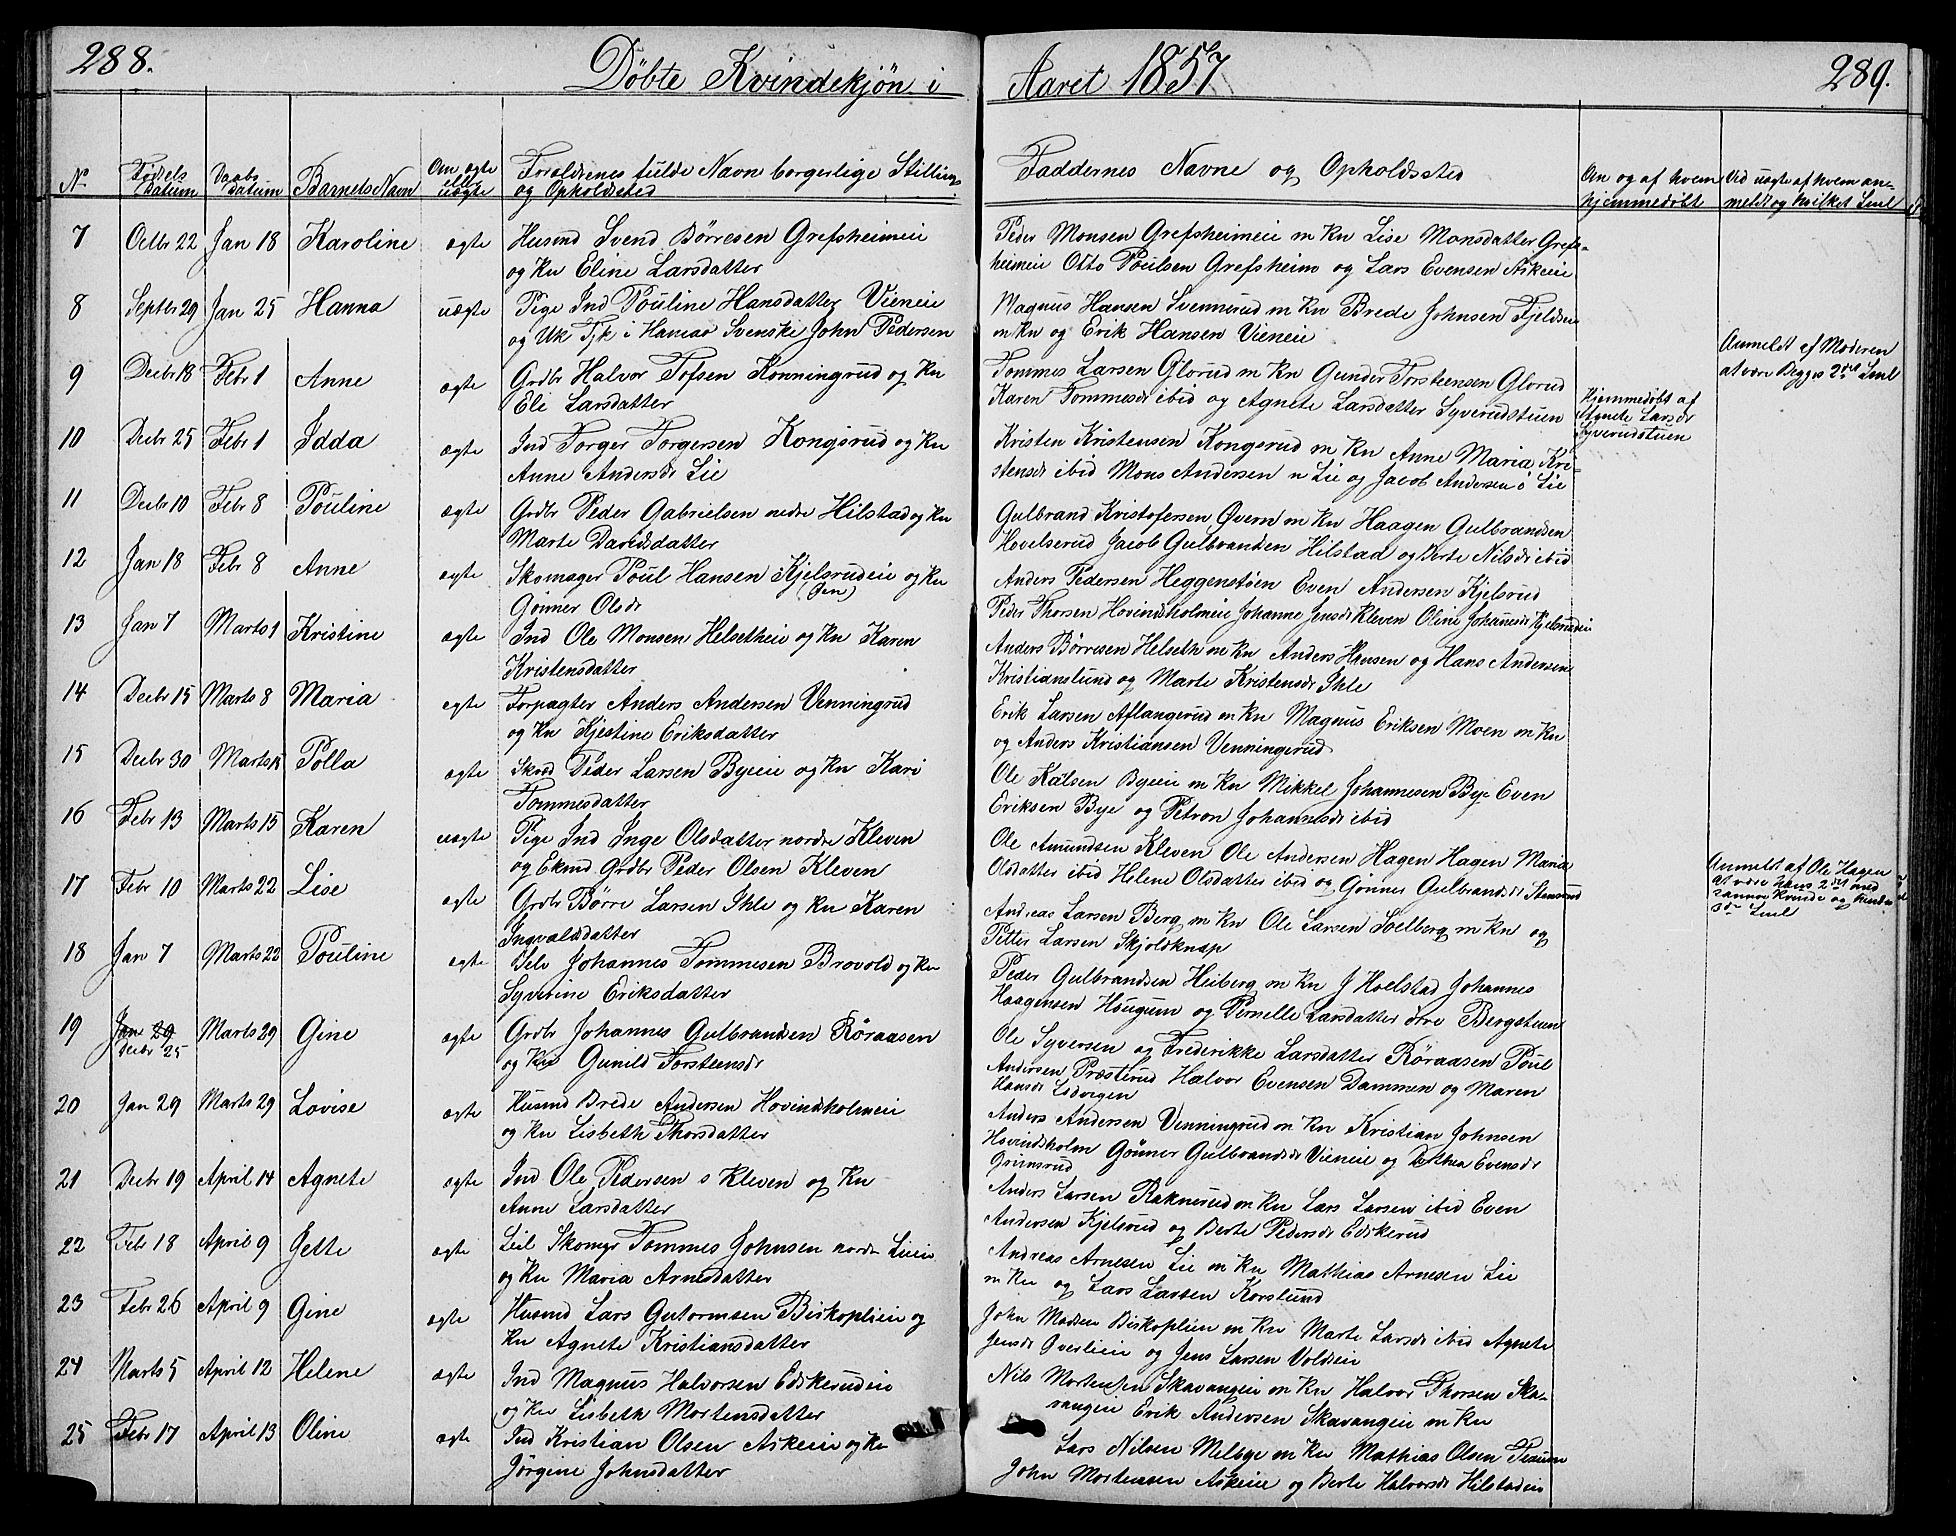 288.
Döbte Kvindekjön i Aaret 1857
289.
No
Födsels Datum
Daabs datum
Barnets Navn
Om ægte ell uægte
Foræld​renes fulde Navn borgerlige Stilling og Opholdssted
Faddernes Navne og Opholdssted
Om og af hvem hjemmedöbt
Ved uægte af hvem anmeldt og hvilket Leul
7 Octbr 22 Jan 18 Karoline ægte Husmd Svend Börresen Grefsheimeie
og Kn Eline Larsdatter
Peder Monsen Grefsheimeie m Kn Lise Monsdatter Grefs-
heimeie Otto Poulsen Grefsheim og Lars Evensen Askeie
8 Septbr 29 Jan 25 Hanna uægte Pige Ind Pouline Hansdatter Vieneie
og Uk Tjk i Hamar Svenske John Pedersen
Magnus Hansen Svennerud m Kn Brede Johnsen Fjeldsen
m Kn og Erik Hansen Vieneie
Anmeldt af Moderen
at være Begges 2det Leul
9 Decbr 18 Febr 1 Anne ægte Grdbr Halvor Tofsen Konningrud og Kn
Eli Larsdatter
Tommes Larsen Glorud m Kn Gunder Torstensen Glorud
Karen Tommesdr ibid og Agnete Larsdatter Syverudstuen
Hjemmedöbt af
Agnete Larsdr
Syverudstuen
10 Decbr 25 Febr 1 Idda ægte Ind Torger Torgersen Kongsrud og Kn
Anne Andersdr Lie
Kristen Kristensen Kongsrud m Kn Anne Maria Kri-
stensdr ibid Mons Andersen n Lie og Jacob Andersen ö Lie
11 Decbr 10 Febr 8 Pouline ægte Grdbr Peder Gabrielsen nedre Hilstad og Kn
Marte Davidsdatter
Gulbrand Kristofersen Övern m Kn Haagen Gulbrandsen
Hovelserud Jacob Gulbrandsen Hilstad og Berte Nilsdr ibid
12 Jan 18 Febr 8 Anne ægte Skomager Poul Hansen Kjelsrudeie og Kn
(Jen)
Gönner Olsdr
Anders Pedersen Heggenstöen Even Andersen Kjelsrud
Peder Thorsen Hovindsholmeie Johanne Jensdr Kleven Oline Johannesdr Kjelsrudeie
13 Jan 7 Marts 1 Kristine ægte Ind Ole Monsen Helsetheie og Kn Karen
Kristensdatter
Anders Börresen Helseth m Kn Anders Hansen og Hans Andersen
Kristianslund og Marte Kristensdr Ihle
14 Decbr 15 Marts 8 Maria ægte Forpagter Anders Andersen Venningrud
og Kn Kjestine Eriksdatter
Erik Larsen Aflangerud m Kn Magnus Eriksen Moen m Kn
og Anders Kristiansen Venningerud
15 Decbr 30 Marts 15 Polla ægte Skrd Peder Larsen Byeeie og Kn Kari
Tommesdatter
Ole Kalsen Byeeie m Kn Mikkel Johannesen Bye Even
Eriksen Bye og Petron Johannesdr ibid
16 Febr 13 Marts 15 Karen uægte Pige Ind Inge Olsdatter nordre Kleven
og Ekmd Grdbr Peder Olsen Kleven
Ole Amundsen Kleven Ole Andersen Hagen Hagen Maria
Olsdatter ibid Helene Olsdatter ibid og Gönner Gulbrandsdr Stensrud
Anmeldt af Ole Hagen
at være hans 2det med
samme Kvinde og hendes
3die Leul
17 Febr 10 Marts 22 Lise ægte Grdbr Börre Larsen Ihle og Kn Karen
Ingvaldsdatter
Andreas Larsen Berg m Kn Ole Larsen Soelberg m Kn og
Petter Larsen Skjoldknap
18 Jan 7 Marts 22 Pouline ægte Selv Johannes Tommesen Brovold og Kn
Syverine Eriksdatter
Peder Gulbrandsen Heiberg m Kn J Hoelstad Johannes
Haagensen Hougum og Pernelle Larsdatter övre Bergsteuen
19 Jan 29 Decbr 25 Marts 29 Gine ægte Grdbr Johannes Gulbrandsen Röraasen
og Kn Gunild Torstensdr
Ole Syversen og Frederikke Larsdatter Röraasen Poul
Andersen Præsterud Halvor Evensen Dammen og Maren
Hansdr Lodvigen
20 Jan 29 Marts 29 Lovise ægte Husmd Brede Andersen Hovindsholmeie
og Kn Lisbeth Thorsdatter
Anders Andersen Venningrud m Kn Kristian Johnsen
Hovindsholm Gönner Gulbrandsdr Vieneie og Dorthea Evensdr
Grimsrud
21 Decbr 19 April 14 Agnete ægte Ind Ole Pedersen s Kleven og Kn
Anne Larsdatter
Anders Larsen Raknerud m Kn Lars Larsen ibid Even
Andersen Kjelsrud og Berte Pedersdr Edskerud
22 Febr 18 April 9 Jette ægte Leil Skomgr Tommes Johnsen nordre Lieeie
og Kn Maria Arnesdatter
Andreas Arnesen Lie m Kn Mathias Arnesen Lie
m Kn og Lars Larsen Korslund
23 Febr 26 April 9 Gine ægte Husmd Lars Gutormsen Biskoplieie og
Kn Agnete Kristiansdatter
John Madsen Biskoplien m Kn Marte Larsdr ibid Agnete
Jensdr Overlieie og Jens Larsen Voldeie
24 Marts 5 April 12 Helene ægte Ind Magnus Halvorsen Edskerudeie
og Kn Lisbeth Mortensdatter
Nils Mortensen Skavangeie m Kn Halvor Thorsen Ska-
vangeie Erik Andersen Skavangeie m Kn
25 Febr 17 April 13 Oline ægte Ind Kristian Olsen Askeeie og Kn
Jörgine Johnsdatter
Lars Nilsen Melbye m Kn Mathias Olsen
John Mortensen Askeie og Berte Halvorsdr Hilstadeie